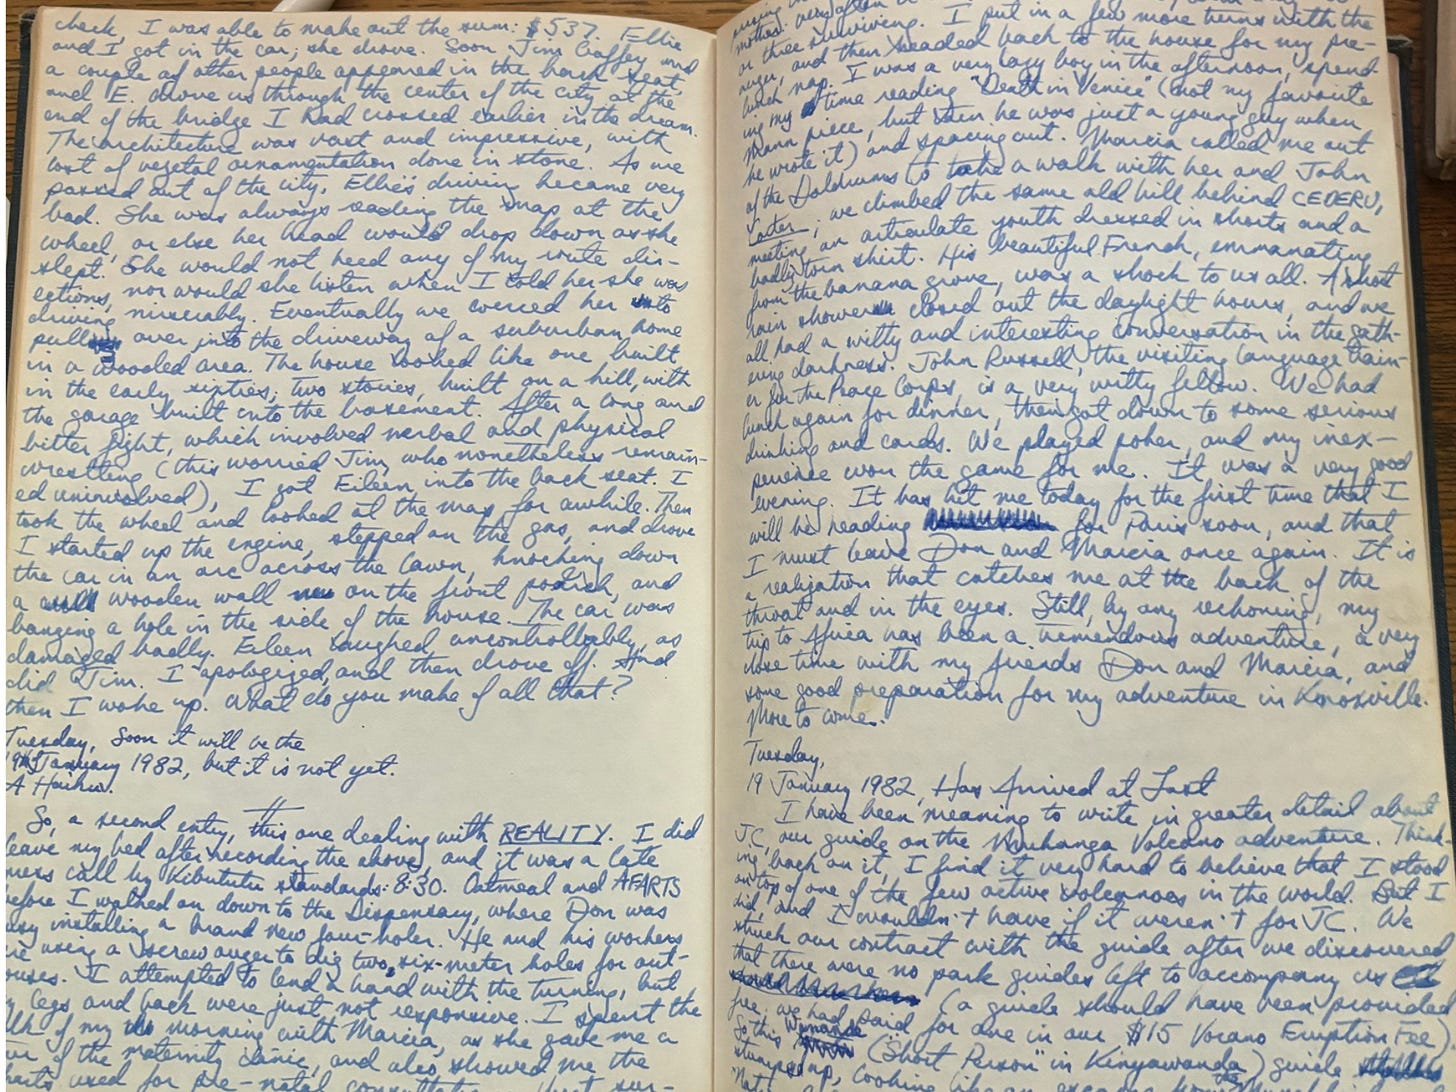 check, I was able to make out the sum: $537. Ellie
and I got in the car; she drove. Soon Jim Gaffey and
a couple of other people appeared in the back seat,
and E. drove us through the center of the city at the
end of the bridge I had crossed earlier in the dream.
The architecture was vast and impressive, with
lost of vegetal ornamentation done in stone. As we
passed out of the city, Ellie's driving became very
bad. She was always reading the map at the
wheel, or else her head would drop down as she
slept. She would not heed any of my route dir-
ections, nor would she listen when I told her she was
driving miserably. Eventually we coerced her to
pull over into the driveway of a suburban home
in a wooded area. The house looked like one built
in the early sixties; two stories, built on a hill, with
the garage built into the basement. After a long and
bitter fight, which involved verbal and physical
wrestling (this worried Jim, who nonetheless remain-
ed uninvolved), I got Eileen into the back seat. I
took the wheel and looked at the map for awhile. Then
I started up the engine, stepped on the gas, and drove
the car in an arc across the lawn, knocking down
a wooden wall on the front porch, and
banging a hole in the side of the house. The car was
damaged badly. Eileen laughed uncontrollably, as
did Jim. I apologized, and then drove off. And
then I woke up. What do you make of all that?
Tuesday, Soon it will be the
19th January 1982, but it is not yet.
A Haiku.
So, a second entry, this one dealing with REALITY. I did
leave my bed after recording the above, and it was a late
mess call by Kibututu standards: 8:30. Oatmeal and AFARTS
before I walked on down to the Dispensary, where Don was
busy installing a brand new four-holer. He and his workers
were using a screw auger to dig two, six-meter holes for out-
houses. I attempted to lend a hand with the turning, but
my legs and back were just not responsive. I spent the
bulk of my morning with Marcia, as she gave me a
tour of the maternity clinic, and also showed me the
charts used for pre-natal
or three surviving. I put in a few more turns with the
auger, and then headed back to the house for my pre-
lunch nap. I was a very lazy boy in the afternoon, spend-
ing my time reading "Death in Venice" (not my favorite
Mann piece, but then he was just a young guy when
he wrote it) and spacing out. Marcia called me out
of the Doldrums to take a walk with her and John
Carter; we climbed the same old hill behind CEDERU,
meeting an articulate youth dressed in shorts and a
badly torn shirt. His beautiful French, emmanating
from the banana grove, was a shock to us all. A short
rain shower closed out the daylight hours, and we
all had a witty and interesting conversation in the gath-
ering darkness. John Russell, the visiting language train-
er for the Peace Corps, is a very witty fellow. We had
lunch again for dinner, then got down to some serious
drinking and cards. We played poker, and my inex-
perience won the game for me. It was a very good
evening. It has hit me today for the first time that I
will be heading for Paris soon, and that
I must leave Don and Marcia once again. It is
a realization that catches me at the back of the
throat and in the eyes. Still, by any reckoning, my
trip to Africa has been a tremendous adventure, a very
close time with my friends Don and Marcia, and
some good preparation for my adventure in Knoxville.
More to come.
Tuesday,
19 January 1982, Has Arrived at Last
I have been meaning to write in greater detail about
JC, our guide on the Muhanga Volcano adventure. Think-
ing back on it, I find it very hard to believe that I stood
on top of one of the few active volcanoes in the world. But I
did, and I wouldn't have if it weren't for JC. We
struck our contract with the guide after we discovered
that there were no park guides left to accompany us
(a guide should have been provided
free, we had paid for one in our $15 Vocano Eruption Fee).
So this ("Short Person" in Kinyawanda) guide
looking like an